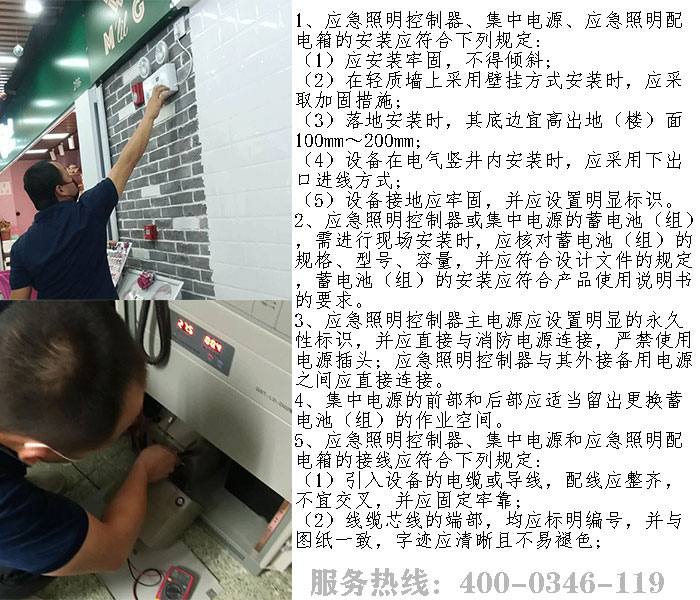 M&G
22.5 004
1、应急照明控制器、集中电源、应急照明配
电箱的安装应符合下列规定：
（1）应安装牢固，不得倾斜；
（2）在轻质墙上采用壁挂方式安装时，应采
取加固措施；
（3）落地安装时，其底边宜高出地（楼）面
100mm～200mm；
（4）设备在电气竖井内安装时，应采用下出
口进线方式；
（5）设备接地应牢固，并应设置明显标识。
2、应急照明控制器或集中电源的蓄电池（组）
，需进行现场安装时，应核对蓄电池（组）的
规格、型号、容量，并应符合设计文件的规定
，蓄电池（组）的安装应符合产品使用说明书
的要求。
3、应急照明控制器主电源应设置明显的永久
性标识，并应直接与消防电源连接，严禁使用
电源插头；应急照明控制器与其外接备用电源
之间应直接连接。
4、集中电源的前部和后部应适当留出更换蓄
电池（组）的作业空间。
5、应急照明控制器、集中电源和应急照明配
电箱的接线应符合下列规定：
（1）引入设备的电缆或导线，配线应整齐，
不宜交叉，并应固定牢靠；
（2）线缆芯线的端部，均应标明编号，并与
图纸一致，字迹应清晰且不易褪色；
服务热线：400-0346-119